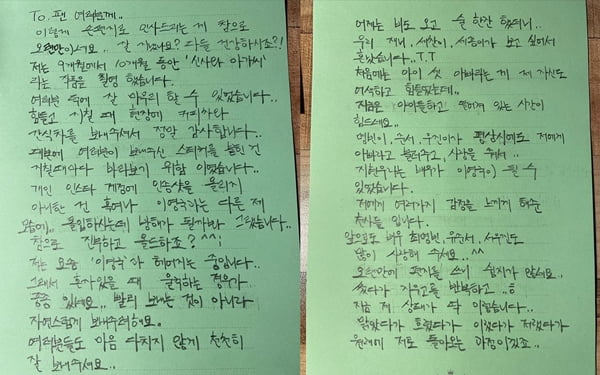 To. 팬 여러분께..
이렇게 손편지로 인사드리는 게 참으로
오랜만이네요.. 잘 지내나요? 다들 건강하시죠?!
저는 9개월에서 10개월 동안 '신사와 아가씨'
라는 작품을 촬영했습니다.
여러분 덕에 잘 마무리 할 수 있었습니다..
힘들고 지칠 때 현장에 커피차와
간식차를 보내주셔서 정말 감사합니다..
대본에 여러분이 보내주신 스티커를 붙힌 건
지칠때마다 바라보기 위함이였습니다..
개인 인스타 계정에 인증샷을 올리지
아니한 건 혹여나 이영국과는 다른 제
모습에.. 몰입하시는데 방해가 될까봐 그랬습니다..
참으로 진부하고 올드하죠? ^^;
저는 요즘 '이영국'과 헤어지는 중입니다..
그래서 혼자있을 때 울컥하는 경우가
종종 있네요.. 빨리 보내는 것이 아니라
자연스럽게 보내주려해요.
여러분들도 마음 다치지 않게 천천히
잘 보내주세요..
어제는 비도 오고 술 한잔 했더니..
우리 재니, 세찬이, 세종이가 보고 싶어서
혼났습니다..T.T
처음에는 아이 셋 아빠라는 게 제 자신도
어색하고 힘들었는데..
지금은 아이들하고 떨어져 있는 시간이
힘드네요..
명빈이, 준서, 우진이가 평상시에도 저에게
아빠라고 불러주고, 사랑을 줘서..
지현우라는 배우가 이영국이 될 수
있었습니다.
저에게 여러가지 감정을 느끼게 해준
천사들 입니다.
앞으로도 배우 최명빈, 유준서, 서우진도
많이 사랑해 주세요.. ^^
오랜만에 편지를 쓰니 쉽지가 않네요..
썼다가 지우고를 반복하고..ㅎ
지금 제 상태가 딱 이렇습니다..
맑았다가 흐렸다가 이랬다가 저랬다가
원래에 저로 돌아오는 과정이겠죠..